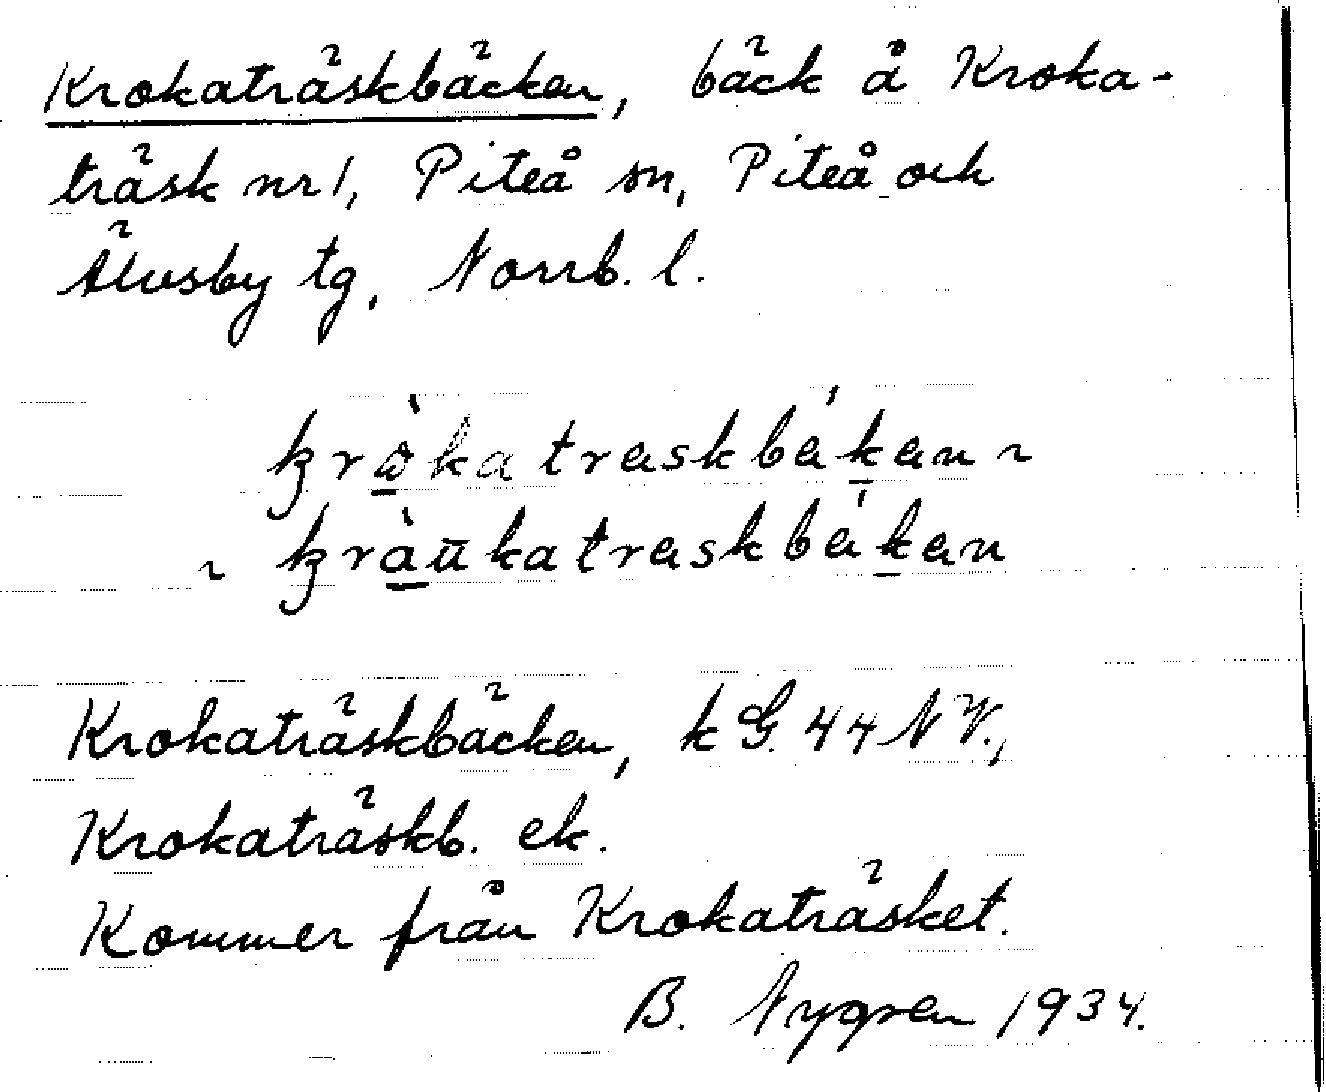 Krokaträskbäcken, bäck å Kroka-
träsk nr 1, Piteå sn, Piteå och
Älvsby tg, Norrb. l.
kròkatraskbákan ~
~ kràukatraskbákan
Krokaträskbäcken, k G. 44 NV.,
Krokaträskb. ek.
Kommer från Krokaträsket.
B. Nygren 1934.